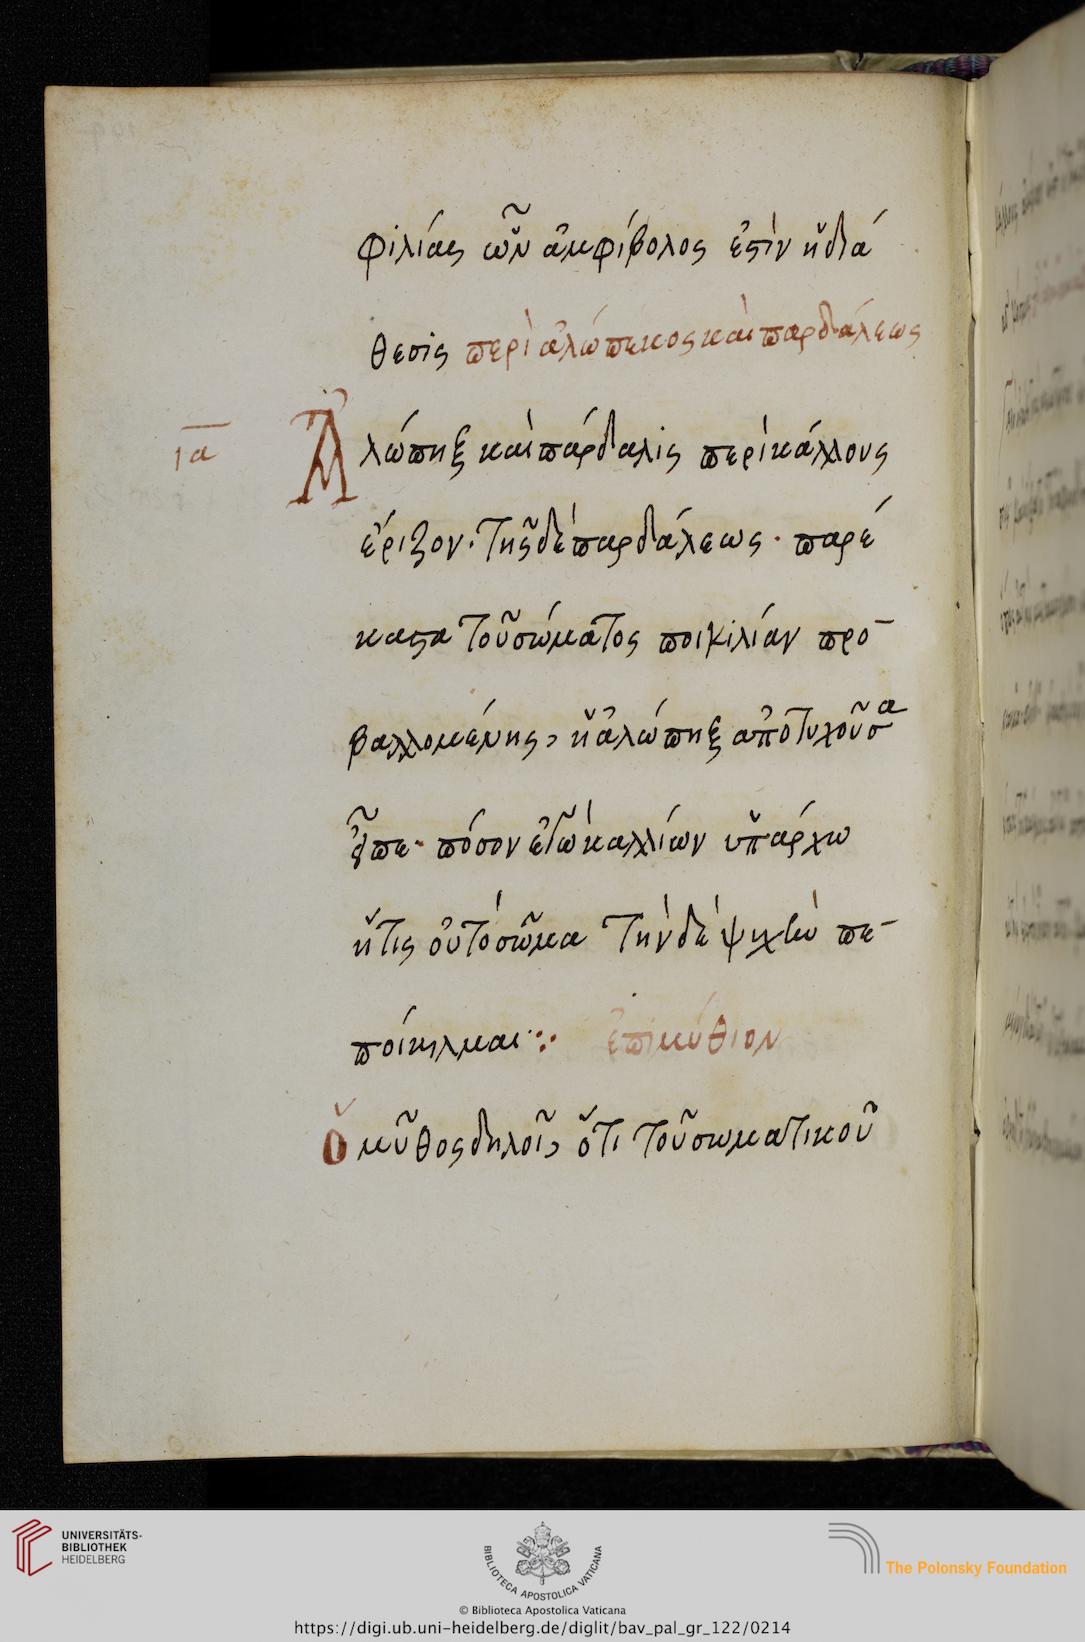 φιλίας ὧν ἀμφίβολος ἐστὶν ἡ διά
θεσις περὶ ἀλώπεκος καὶ παρδάλεως
ια
Ἀλώπηξ καὶ πάρδαλις περὶ κάλλους
ἔριζον· τῆς δὲ παρδάλεως· παρέ
καστα τοῦ σώματος ποικιλίαν προ
βαλλομένης, ἡ ἀλώπηξ ἀποτυχοῦσα
εἶπε· πόσον ἐγὼ καλλίων ὑπάρχω
ἥτις οὐ τὸ σῶμα τὴν δὲ ψυχὴν πε
ποίκιλμαι: ἐπιμύθιον
ὁ μῦθος δηλοῖ, ὅτι τοῦ σωματικοῦ
UNIVERSITÄTS-
BIBLIOTHEK
HEIDELBERG
BIBLIOTECA APOSTOLICA VATICANA
The Polonsky Foundation
© Biblioteca Apostolica Vaticana
https://digi.ub.uni-heidelberg.de/diglit/bav_pal_gr_122/0214